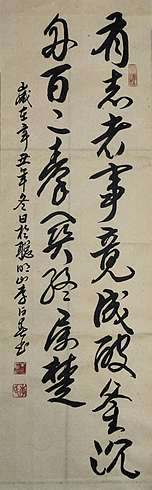 有志者事竟成破釜沉
舟百二秦关终属楚
岁在辛丑年冬日於聪明山李白